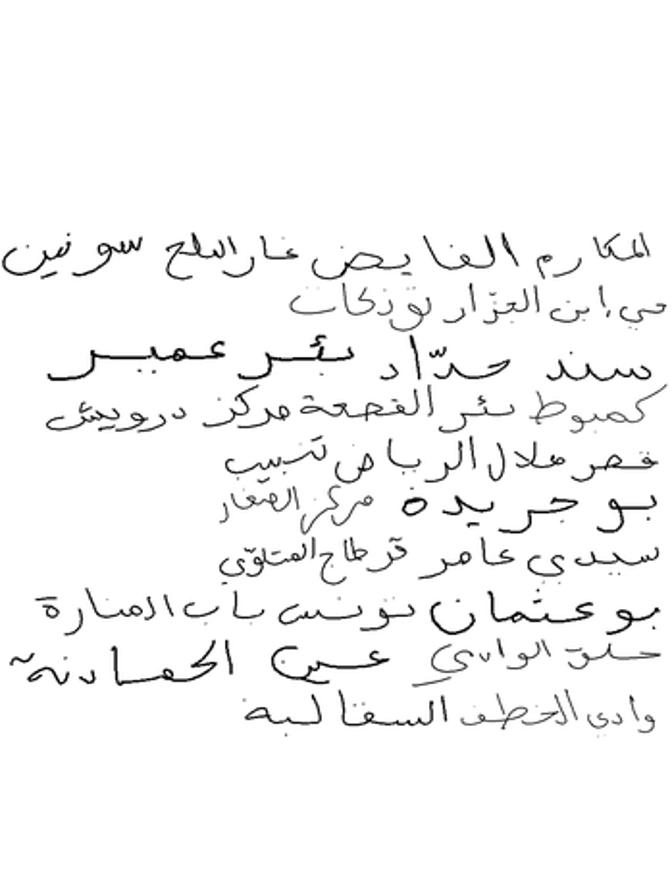 المكارم الفايض غار الملح سونين
حي ابن الجزّار توزكات
سند حدّاد بئر عمير
كمبوط بئر القصعة مركز درويش
قصر هلال الرياض تبيب
بو جريدة مركز الصغار
سيدي عامر قرطاج المتلوّي
بو عثمان تونس باب المنارة
حلق الوادي عين الحمادنة
وادي الخطف السقالبة